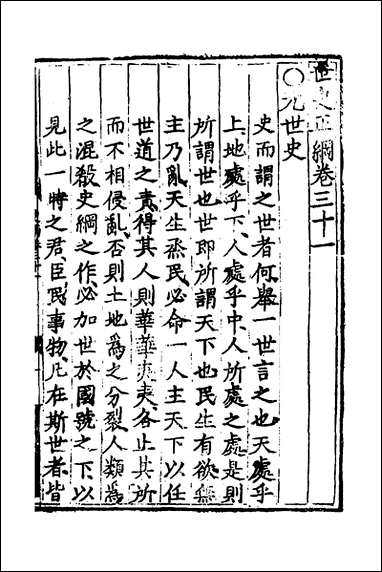 世史正綱卷三十一
〇元世史
史而謂之世者何舉一世言之也天處乎
上地處乎下人處乎中人所處之處是則
所謂世也世即所謂天下也民生有欲無
主乃亂天生烝民必命一人主天下以任
世道之責得其人則華華夷夷各止其所
而不相侵亂否則土地為之分裂人類為
之混殽史綱之作必加世於國號之下以
見此一時之君臣民事物凡在斯世者皆